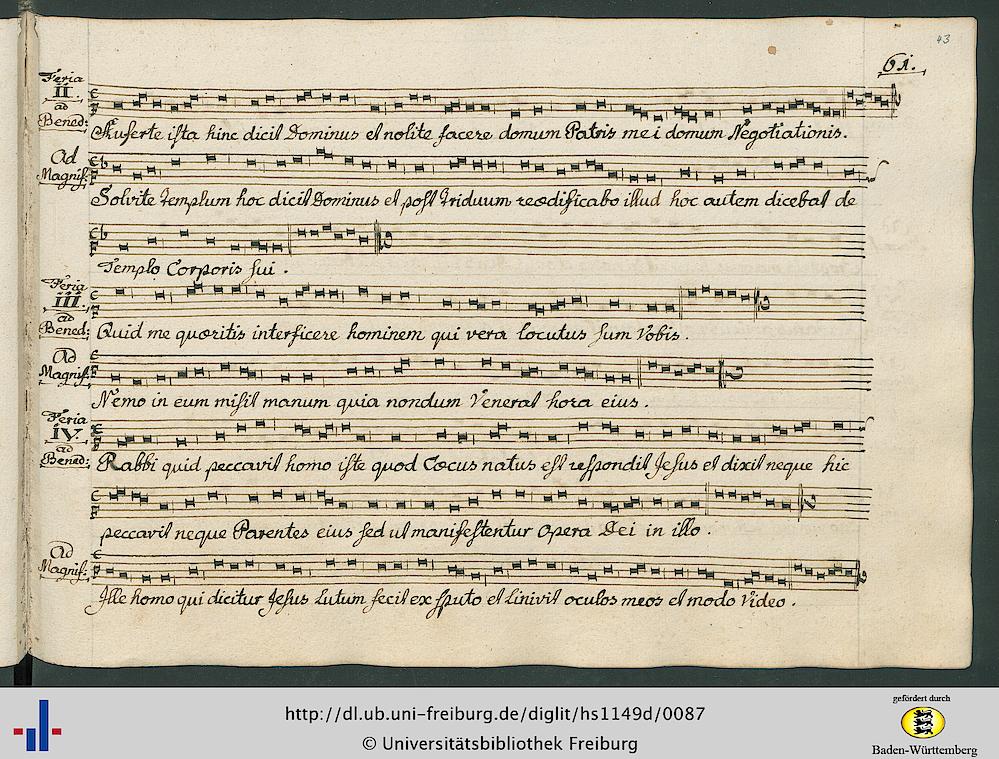 43
61.
Feria
II.
ad
Bened:
Auferte ista hinc dicit Dominus et nolite facere domum Patris mei domum Negotiationis.
Ad
Magnif:
Solvite Templum hoc dicit Dominus et post Triduum reædificabo illud hoc autem dicebat de
Templo Corporis sui.
Feria
III.
ad
Bened:
Quid me quæritis interficere hominem qui vera locutus sum Vobis.
Ad
Magnif:
Nemo in eum misit manum quia nondum Venerat hora eius.
Feria
IV.
ad
Bened:
Rabbi quid peccavit homo iste quod Cæcus natus est respondit Jesus et dixit neque hic
peccavit neque Parentes eius sed ut manifestentur Opera Dei in illo.
Ad
Magnif:
Ille homo qui dicitur Jesus Lutum fecit ex sputo et Linivit oculos meos et modo Video.
http://dl.ub.uni-freiburg.de/diglit/hs1149d/0087
© Universitätsbibliothek Freiburg
gefördert durch
Baden-Württemberg